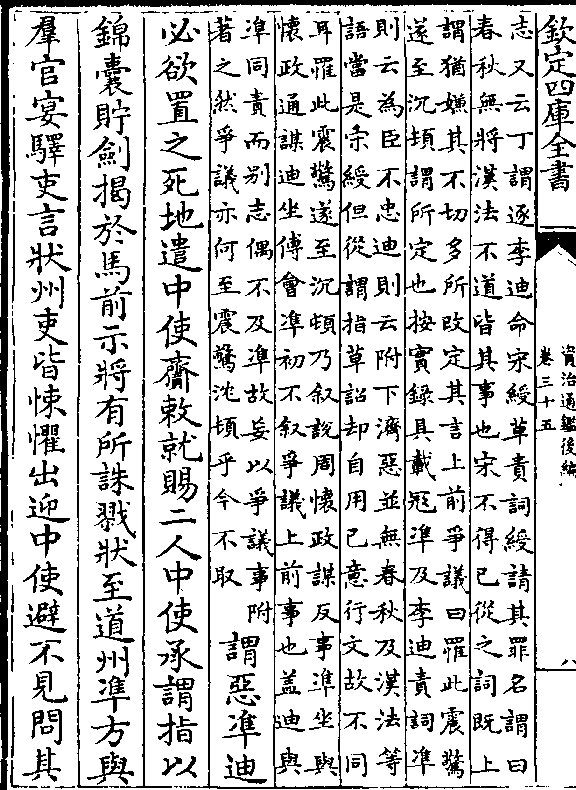 欽定四庫全書
資治通鑑後編
卷三十五
八
志又云丁謂逐李迪命宋綬草責詞綬請其罪名謂曰
春秋無將漢法不道皆其事也宋不得已從之詞既上
謂猶嫌其不切多所改定其言上前爭議曰罹此震驚
遂至沉頓謂所定也按實録具載冦準及李迪責詞凖
則云為臣不忠迪則云附下濟惡並無春秋及漢法等
語當是宋綬但從謂指草詔却自用已意行文故不同
耳罹此震驚遂至沉頓乃叙説周懷政謀反事準坐與
懷政通謀迪坐傅會準初不叙爭議上前事也葢迪與
凖同責而别志偶不及準故妄以爭議事附
著之然爭議亦何至震驚沈頓乎今不取
謂惡凖迪
必欲置之死地遣中使齎敕就賜二人中使承謂指以
錦囊貯劍揭於馬前示將有所誅戮狀至道州凖方與
羣官宴驛吏言狀州吏皆悚懼出迎中使避不見問其